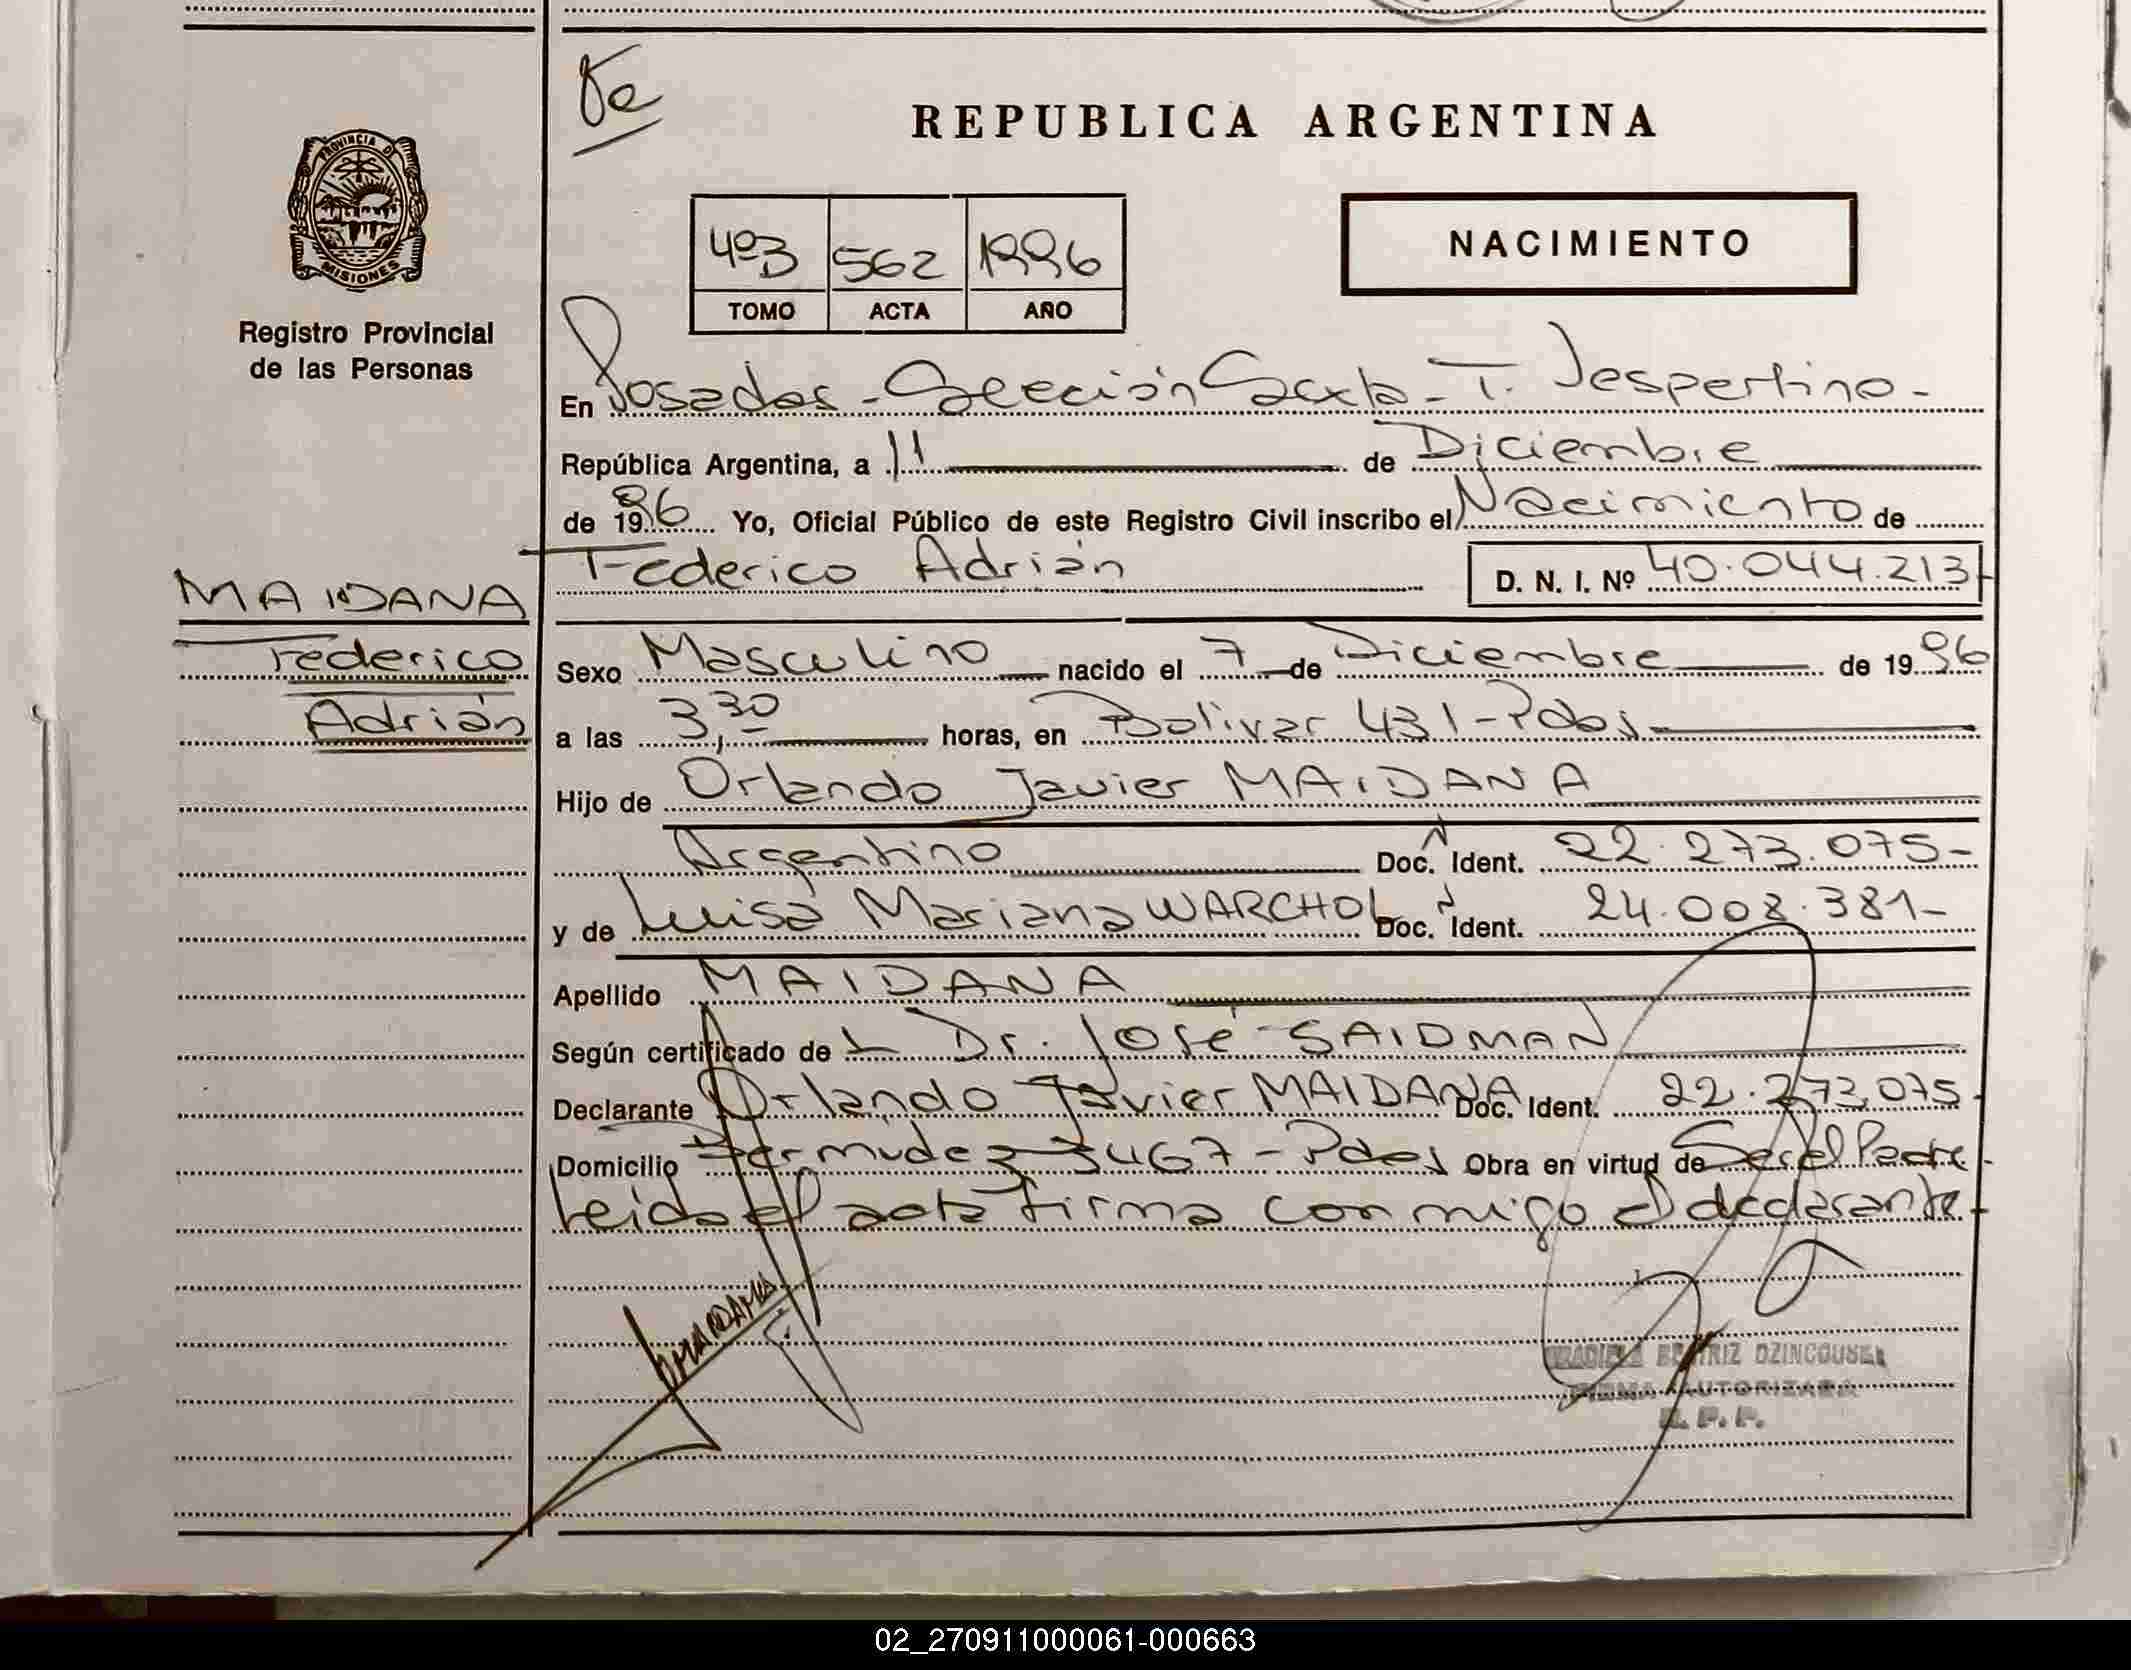 REPUBLICA ARGENTINA
PROVINCIA DE
MISIONES
Registro Provincial
de las Personas
4ºB 562 1996
TOMO ACTA AÑO
NACIMIENTO
En Posadas - Sección Sexta - T. Vespertino -
República Argentina, a 11 de Diciembre
de 1996 Yo, Oficial Público de este Registro Civil inscribo el Nacimiento de
Federico Adrián D. N. I. Nº 40.044.213
MAIDANA
Federico
Adrián
Sexo Masculino nacido el 7 de Diciembre de 1996
a las 3,30 horas, en Bolivar 431 - Pdas
Hijo de Orlando Javier MAIDANA
Argentino Doc. Ident. 22.273.075-
y de Luisa Mariana WARCHOL Doc. Ident. 24.008.381-
Apellido MAIDANA
Según certificado de L Dr. José SAIDMAN
Declarante Orlando Javier MAIDANA Doc. Ident. 22.273.075
Domicilio Bermudez 3467 - Pdas Obra en virtud de Ser el Padre -
Leida el acta firma conmigo el declarante -
BEATRIZ DZINCOUSKI
FIRMA AUTORIZADA
R. P. P.
02_270911000061-000663